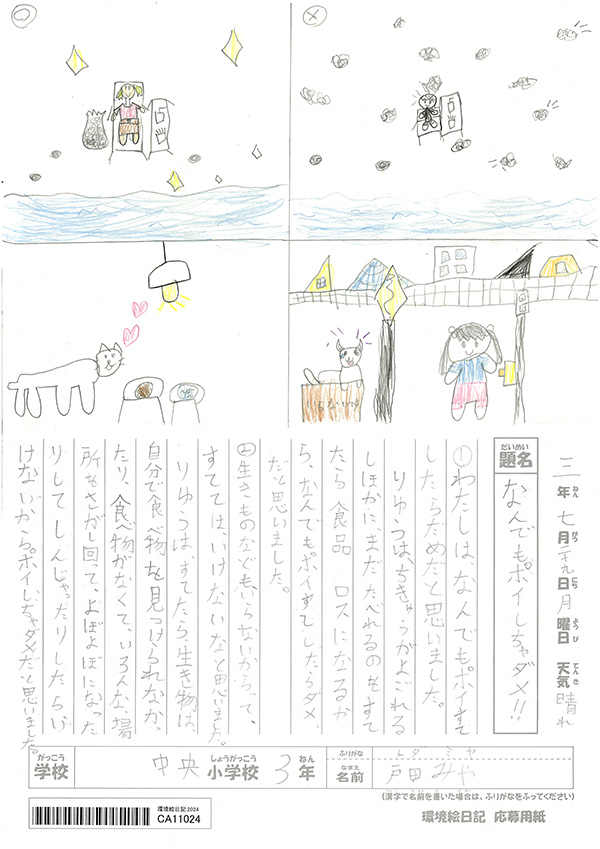 三年七月二九日月曜日 天気晴れ
ねん がつ にち ようび てんき
だいめい
題名 なんでもポイしちゃダメ!!
①わたしは、なんでもポイすて
したらだめだと思いました。
りゆうは、ちきゅうがよごれる
しほかに、まだたべれるのをすて
たら食品 ロスになるか
ら、なんでもポイすてしたらダメ
だと思いました。
②生きものなどもいらないからって、
すてては、いけないなと思いました。
りゆうは、すてたら、生き物は、
自分で食べ物を見つけられなかっ
たり、食べ物がなくて、いろんな、場
所をさがし回って、よぼよぼになった
りしてしんじゃったりしたらい
けないから。ポイしちゃダメだと思いました。
がっこう しょうがっこう ねん ふりがな トダ ミヤ
学校 中央 小学校 3年 なまえ 名前 戸田 みや
(漢字で名前を書いた場合は、ふりがなをふってください)
環境絵日記2024
CA11024
環境絵日記 応募用紙